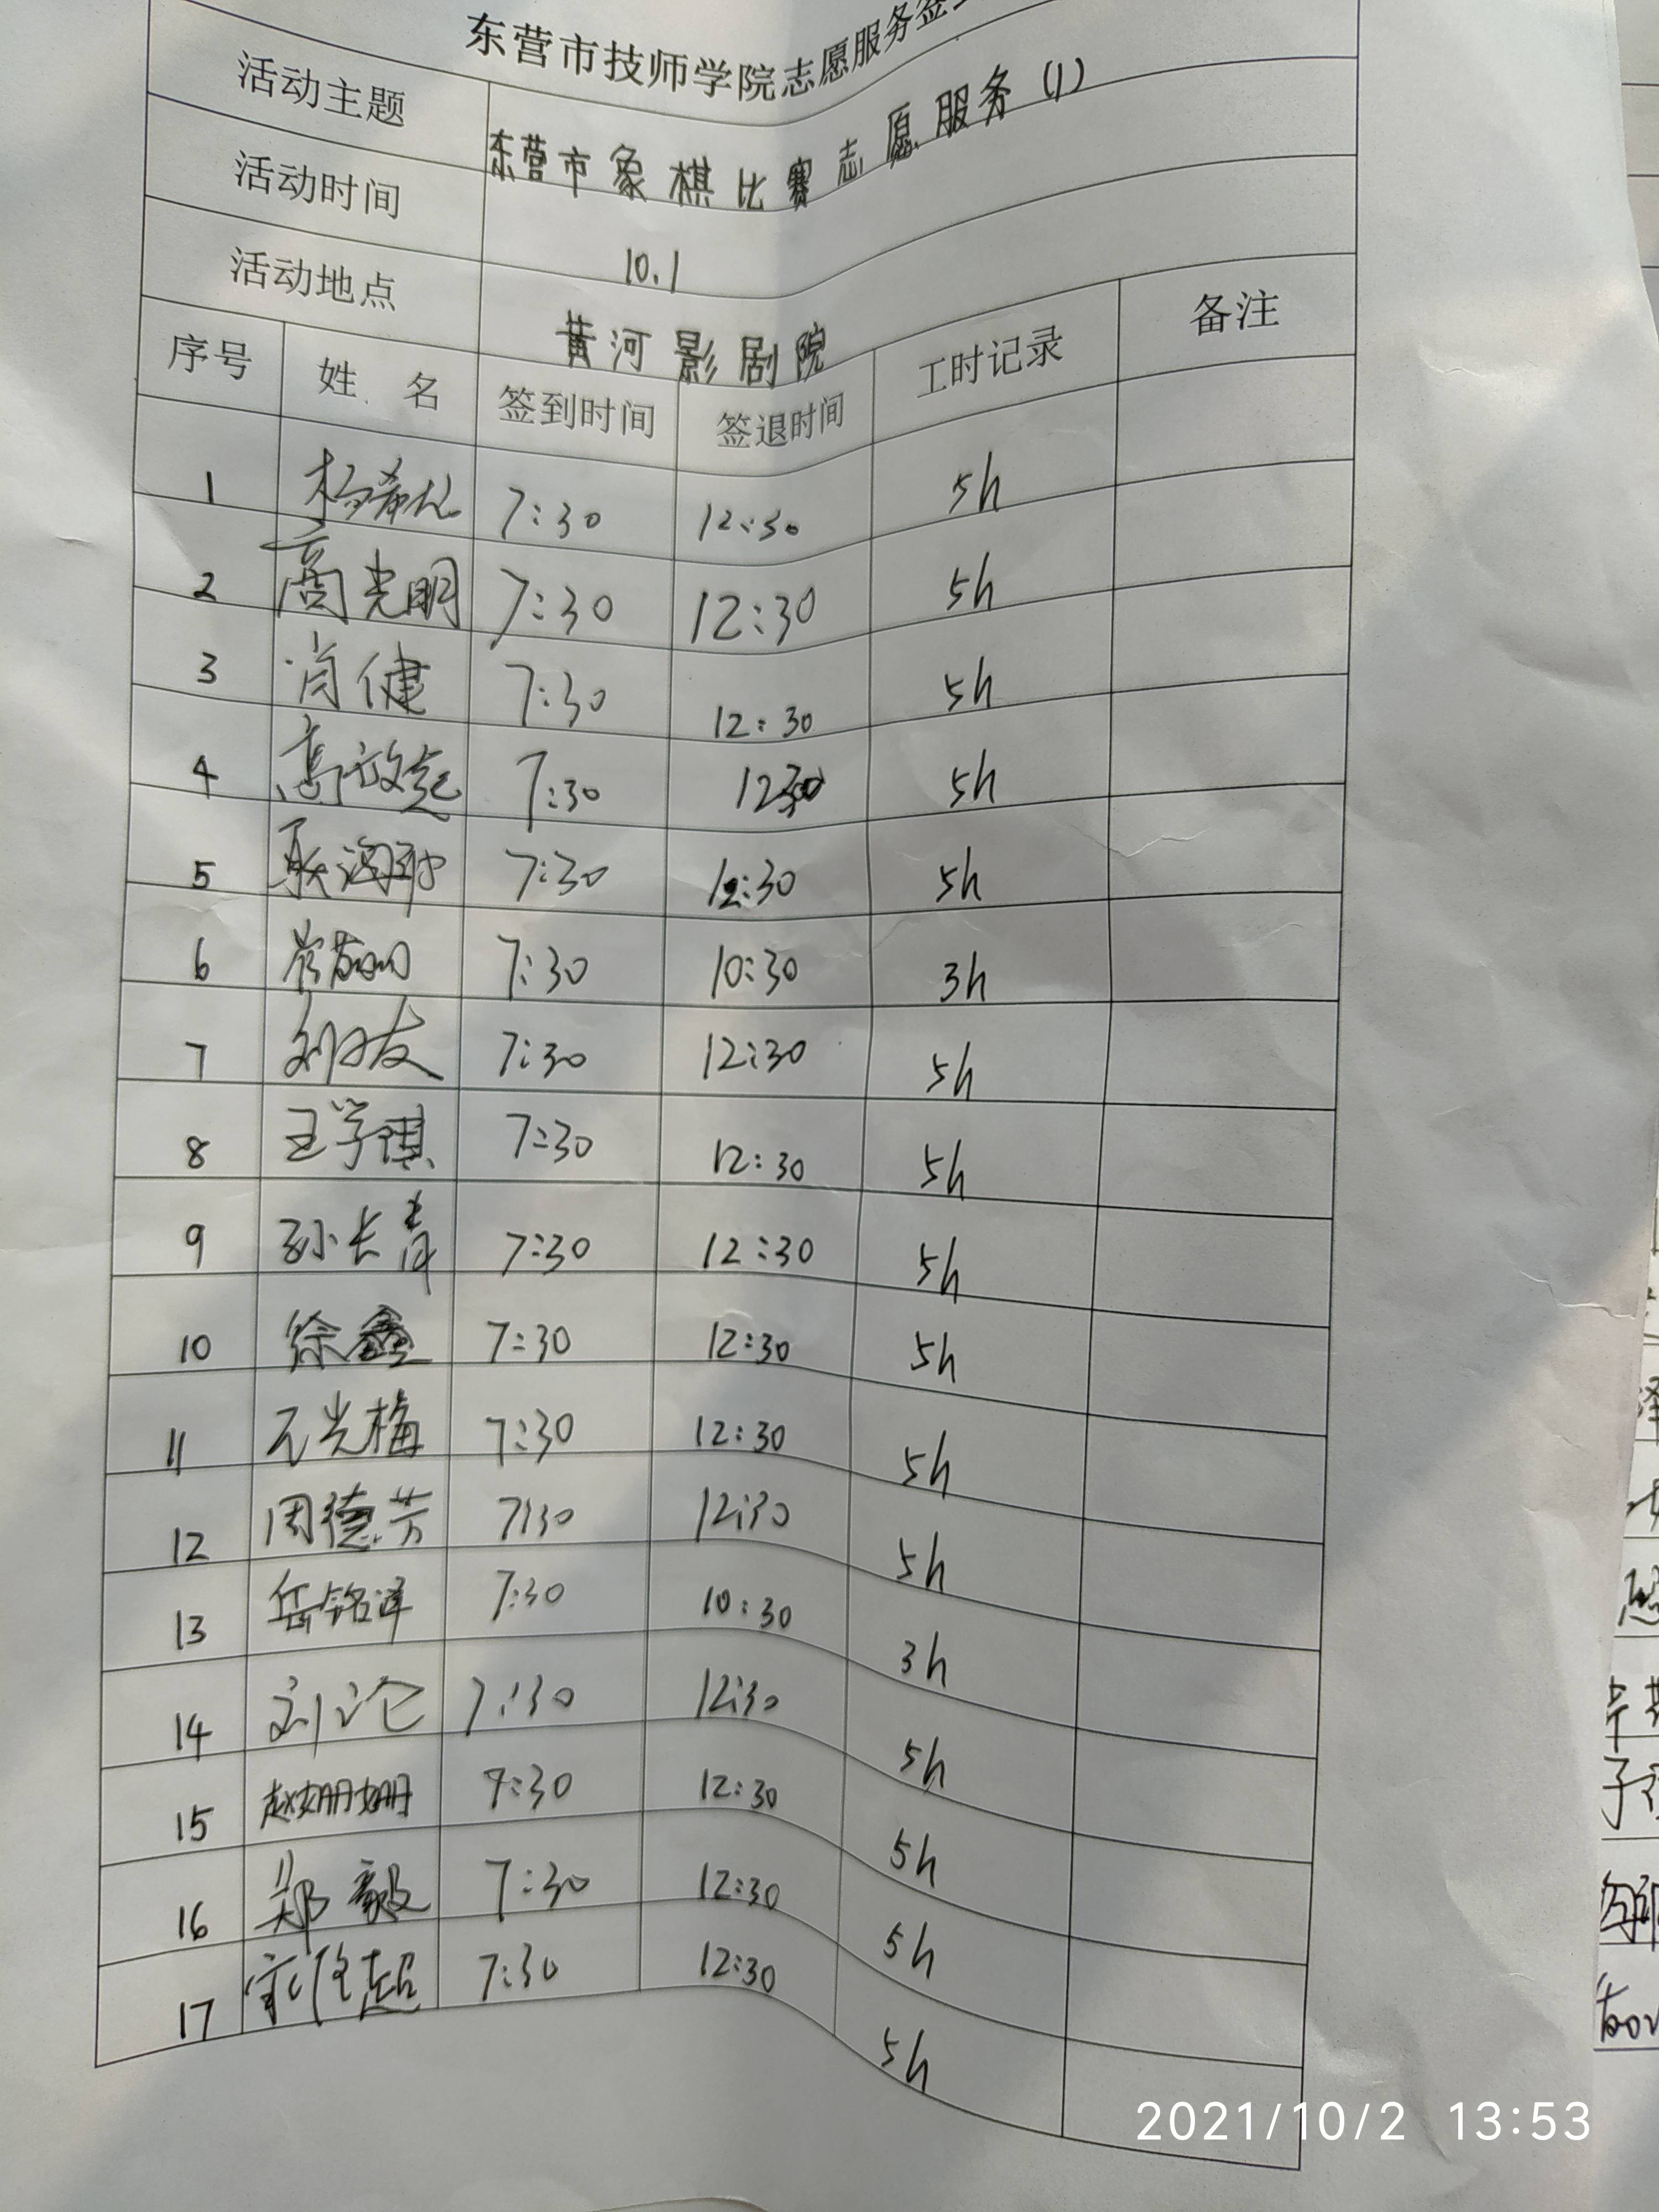 东营市技师学院志愿服务签
活动主题 东营市象棋比赛志愿服务(1)
活动时间 10.1
活动地点 黄河影剧院
序号 姓 名 签到时间 签退时间 工时记录 备注
1 杨希 7:30 12:30 5h
2 高光明 7:30 12:30 5h
3 肖健 7:30 12:30 5h
4 高 7:30 1230 5h
5 7:30 12:30 5h
6 7:30 10:30 3h
7 友 7:30 12:30 5h
8 王学琪 7:30 12:30 5h
9 孙长青 7:30 12:30 5h
10 徐鑫 7:30 12:30 5h
11 光梅 7:30 12:30 5h
12 周德芳 7:30 12:30 5h
13 岳铭泽 7:30 10:30 3h
14 刘论 7:30 12:30 5h
15 赵姗姗 7:30 12:30 5h
16 郑毅 7:30 12:30 5h
17 超 7:30 12:30 5h
2021/10/2 13:53